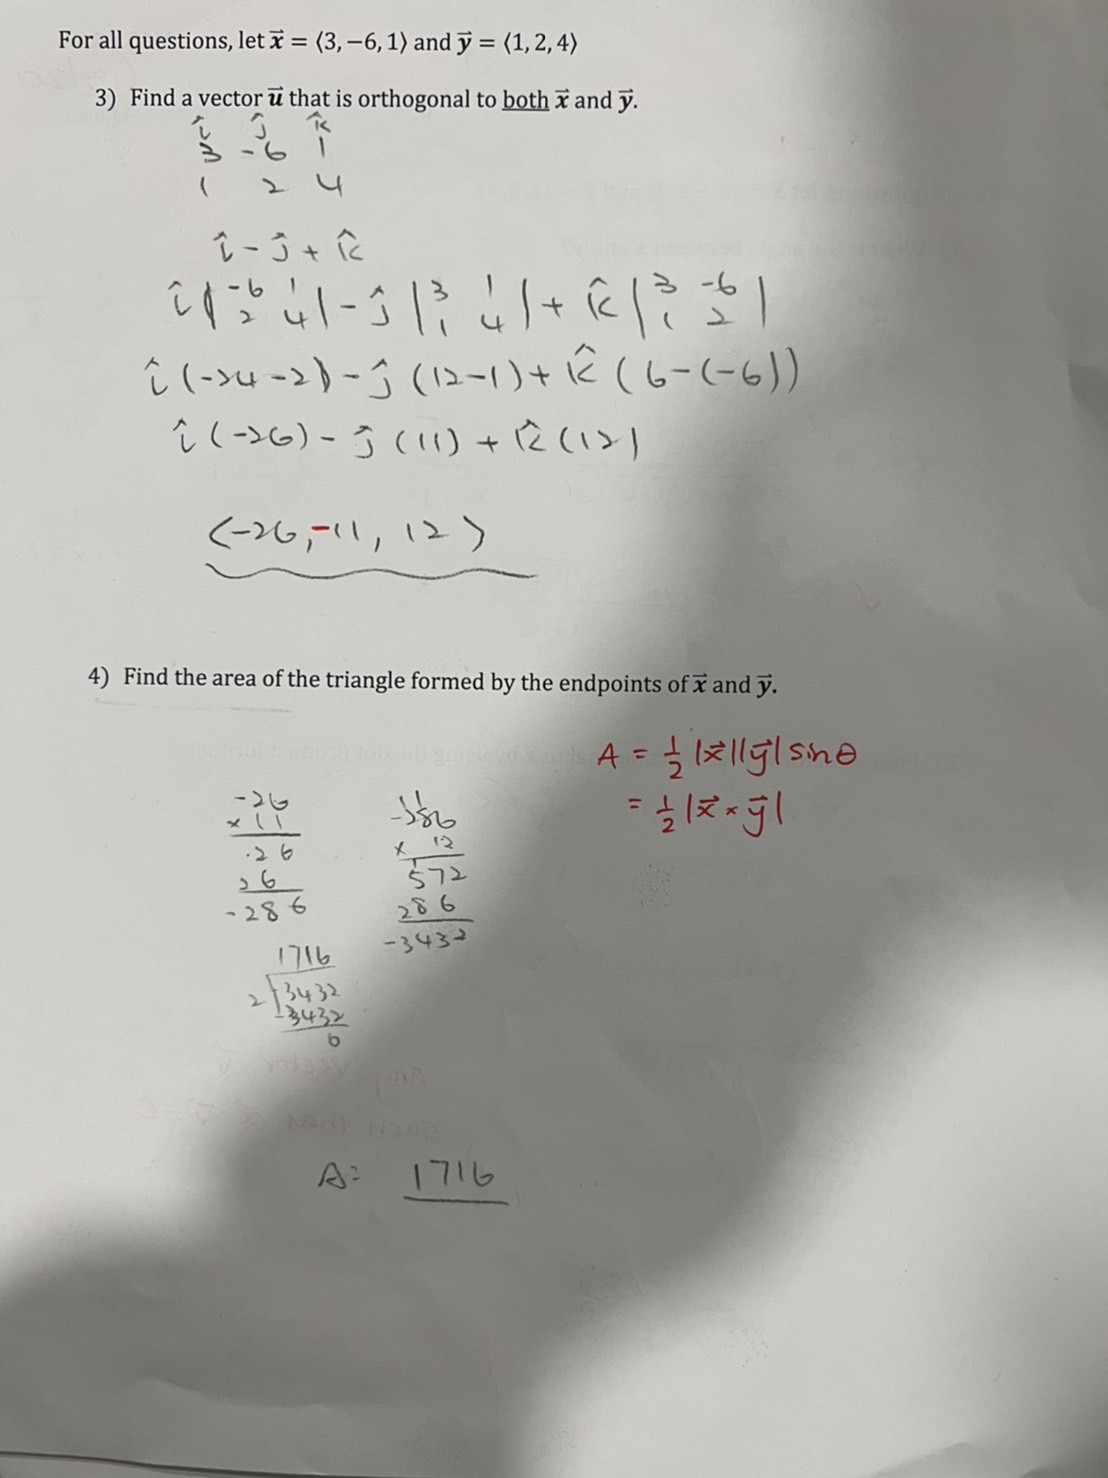 For all questions, let x⃗ = ⟨3, −6, 1⟩ and y⃗ = ⟨1, 2, 4⟩
3) Find a vector u⃗ that is orthogonal to both x⃗ and y⃗.
î ĵ k̂
3 -6 1
1 2 4
î - ĵ + k̂
î |-6 1 2 4| - ĵ |3 1 1 4| + k̂ |3 -6 1 2|
î (-24-2) - ĵ (12-1) + k̂ (6-(-6))
î (-26) - ĵ (11) + k̂ (12)
⟨-26, -11, 12⟩
4) Find the area of the triangle formed by the endpoints of x⃗ and y⃗.
A = 1/2 |x⃗||y⃗| sinθ
= 1/2 |x⃗ × y⃗|
-26
× 11
26
26
-286
× 12
572
286
-3432
1716
2 3432
-3432
0
A= 1716